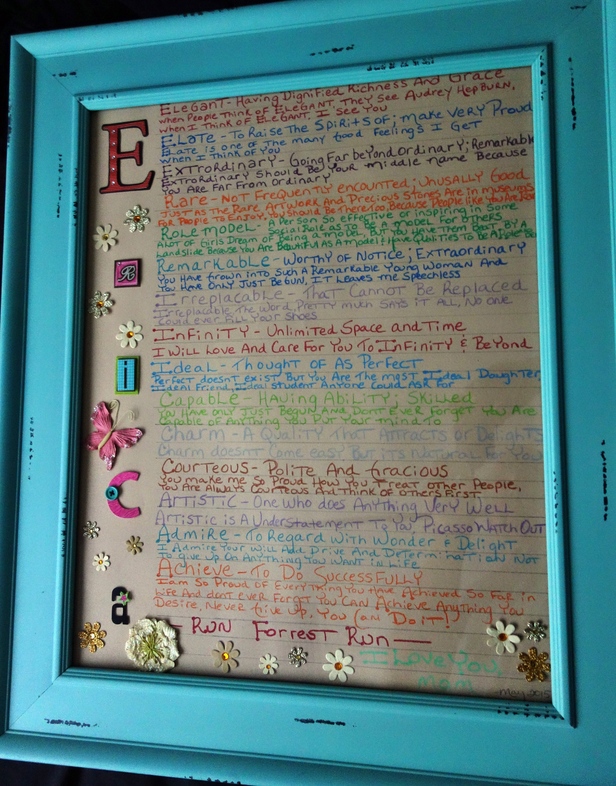 Elegant - Having Dignified Richness And Grace
when People Think of ELEGANT, They See Audrey HepBurn,
when I Think of ELEGANT, I See You
E
ELate - To Raise The Spirits of; make VERY Proud
ELate is one of The many Good Feelings I Get
When I Think of You
ExtrOrdinary - Going Far beyond Ordinary; Remarkable
ExtrOrdinary Should Be Your middle Name Because
You ARE FAR From Ordinary
Rare - Not Frequently encounted; Unusally Good
Just As The Rare Artwork And Precious Stones Are in museums
For People To Enjoy, You Should Be There too, Because People like You Are Rare
Role model - A Person So effective or inspiring in Some
Social Role as to be A model For others
A lot of Girls Dream of Being a model, But You Have Them Beat By A
Landslide Because You Are Beautiful As A model & Have Qualities to Be A
R
Remarkable - Worthy of Notice; Extraordinary
You Have Grown into Such A Remarkable Young Woman And
You Have Only Just Begun, IT Leaves me Speechless
Irreplacable - That Cannot Be Replaced
Irreplacable The Word, Pretty much SAYS iT All, No one
Could ever Fill Your Shoes
InFiniTY - Unlimited Space and Time
I Will Love And Care For You To InFinity & Beyond
i
Ideal - Thought of As Perfect
Perfect doesnt exist But You Are The most Ideal Daughter
Ideal Friend, Ideal Student Anyone Could Ask For
Capable - Having Ability; Skilled
You Have only Just Begun And Dont Ever Forget You Are
Capable of Anything You Put Your mind To
Charm - A Quality That Attracts or Delights
Charm doesnt Come Easy But its Natural For You
C
Courteous - Polite And Gracious
You make me So Proud How You Treat other People,
You Are Always Courteous And Think of others First
Artistic - One who does Anything Very Well
Artistic is A Understatement To You Picasso Watch Out
Admire - To Regard With Wonder & Delight
I Admire Your Will Add Drive And Determination Not
To Give Up On Anything You Want in Life
a
Achieve - To Do Successfully
I am So Proud of Everything You Have Achieved So Far in
Life And dont ever Forget You Can Achieve Anything You
Desire, Never Give Up, You Can Do iT!
- Run Forrest Run -
I Love You,
mom